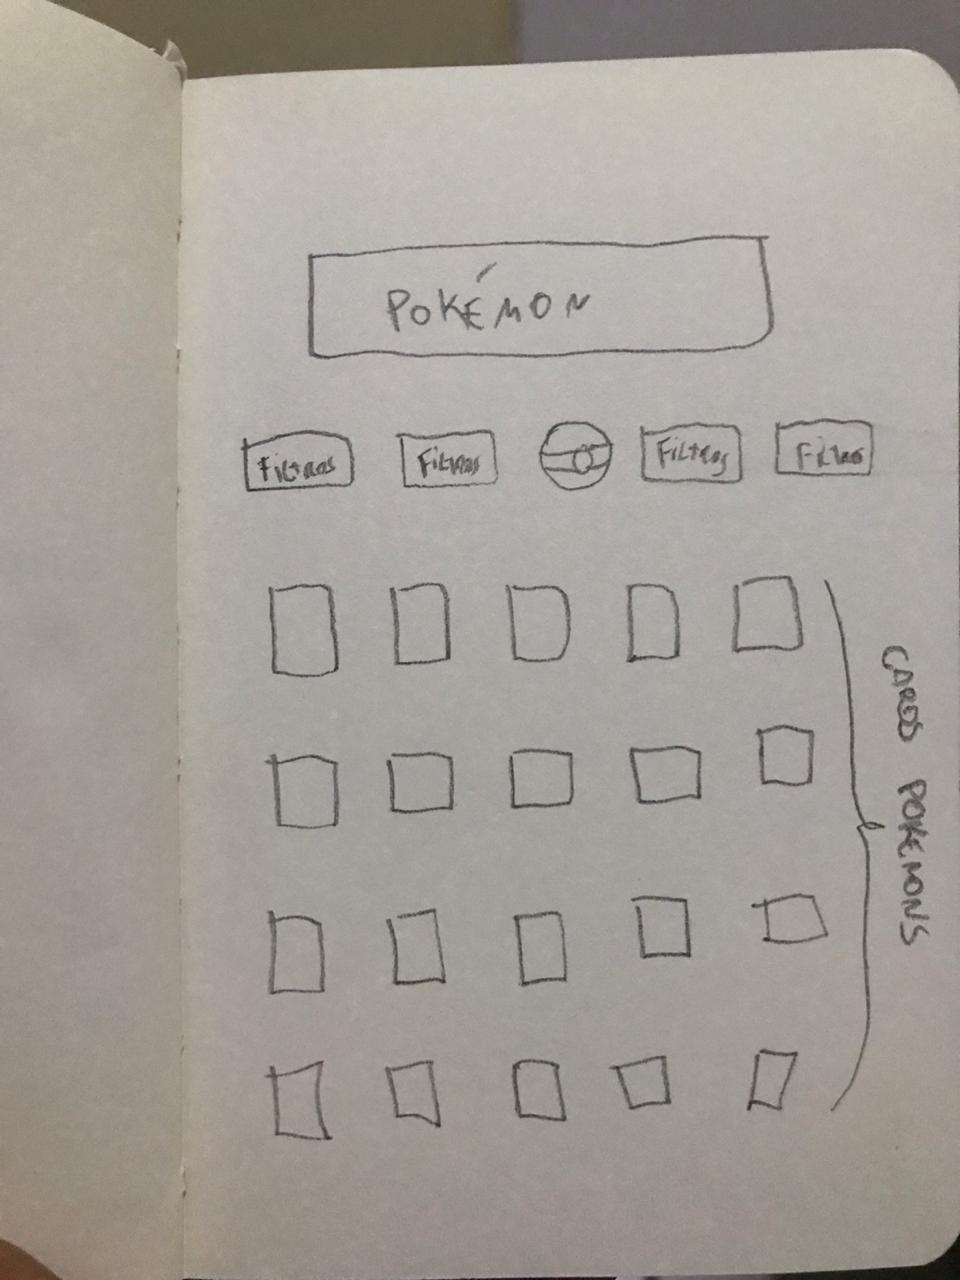 POKÉMON
FiLTROS FiLTROS FiLTROS FiLTROS
CARDS POKEMONS